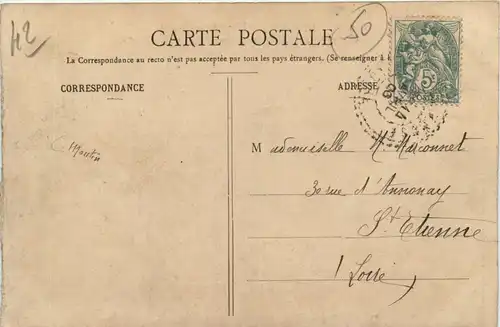 42
50
CARTE POSTALE
La Correspondance au recto n'est pas acceptée par tous les pays étrangers. (Se renseigner à
CORRESPONDANCE
ADRESSE
5
Mademoiselle M. Marconnet
30 rue d'Annonay
St Etienne
Loire